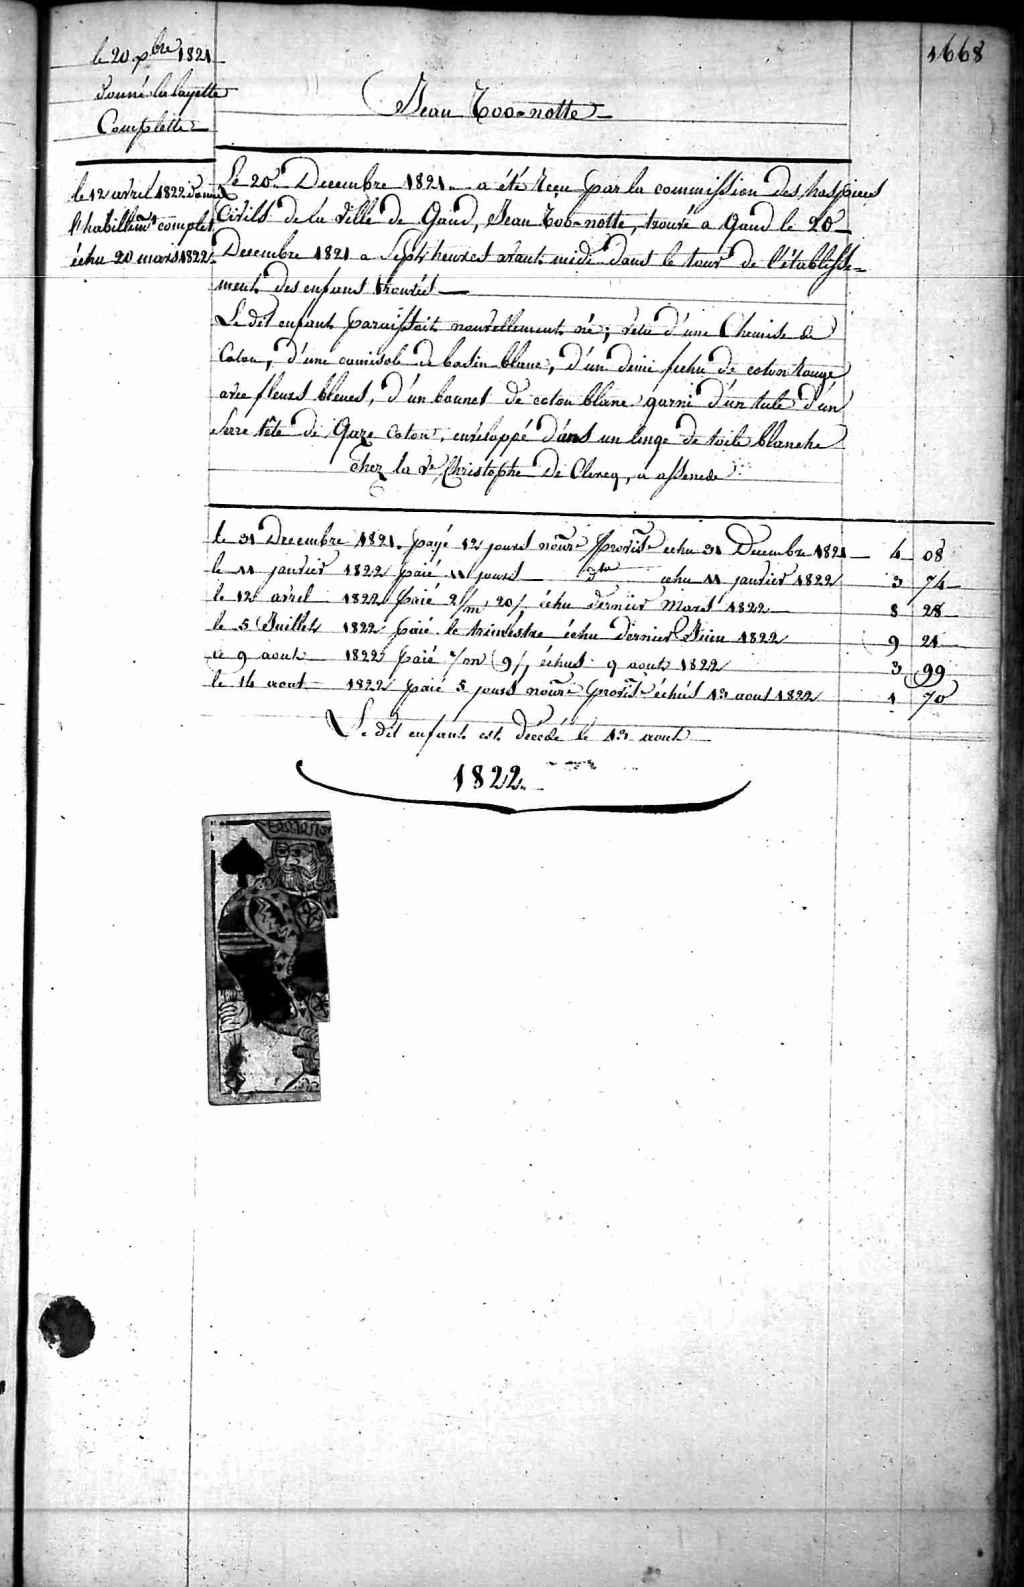 1668
le 20 Xbre 1821
donné la layette
Complette
Jean Too-notte
le 12 avril 1822 donné
l'habillemt complet
échu 20 mars 1822
Le 20e Decembre 1821 a été recu par la commission des hospices
Civils de la ville de Gand, Jean Too-notte, trouvé a Gand le 20e
Decembre 1821 a Sept heures avant midi dans le tour de l'établisse-
ment des enfans trouvés
Le dit enfant paraissait nouvellement né; vétu d'une Chemise de
Coton, d'une camisole de basin blanc, d'un demi fichu de coton rouge
avec fleurs bleues, d'un bonnet de coton blanc garni d'un tule d'un
Serre tête de Gaze Coton, enveloppé dans un linge de toile blanche
chez la Ve Christophe De Clercq, a assenede
le 31 Decembre 1821 payé 12 jours nourre provisre echu 31 Decembre 1821 4 08
le 11 janvier 1822 paié 11 jours dto echu 11 janvier 1822 3 74
le 12 avril 1822 paié 2/m 20/j échu dernier Mars 1822 8 28
le 5 Juillet 1822 paié le trimestre échu dernier Juin 1822 9 21
le 9 aout 1822 paié 1/m 9/j échus 9 aout 1822 3 99
le 14 aout 1822 paié 5 jours nourre provisre échus 13 aout 1822 1 70
Le dit enfant est décédé le 13 aout
1822